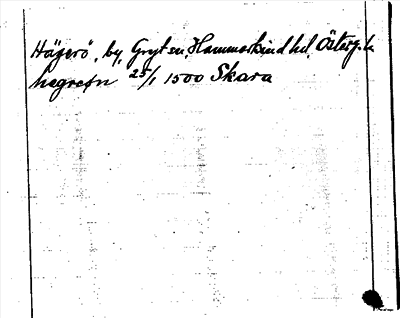 Hägerö, by, Gryt sn, Hammarkind hd, Österg. l.
hegreøn 25/1 1500 Skara